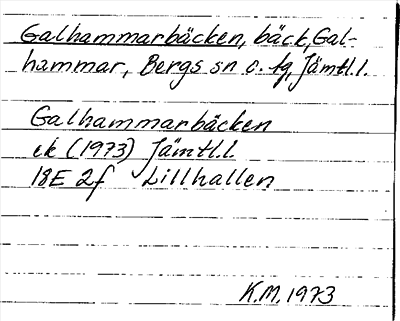 Galhammarbäcken, bäck, Gal-
hammar, Bergs sn o. tg, Jämtl.l.
Galhammarbäcken
ek (1973) Jämtl.l.
18E 2f Lillhallen
K.M. 1973